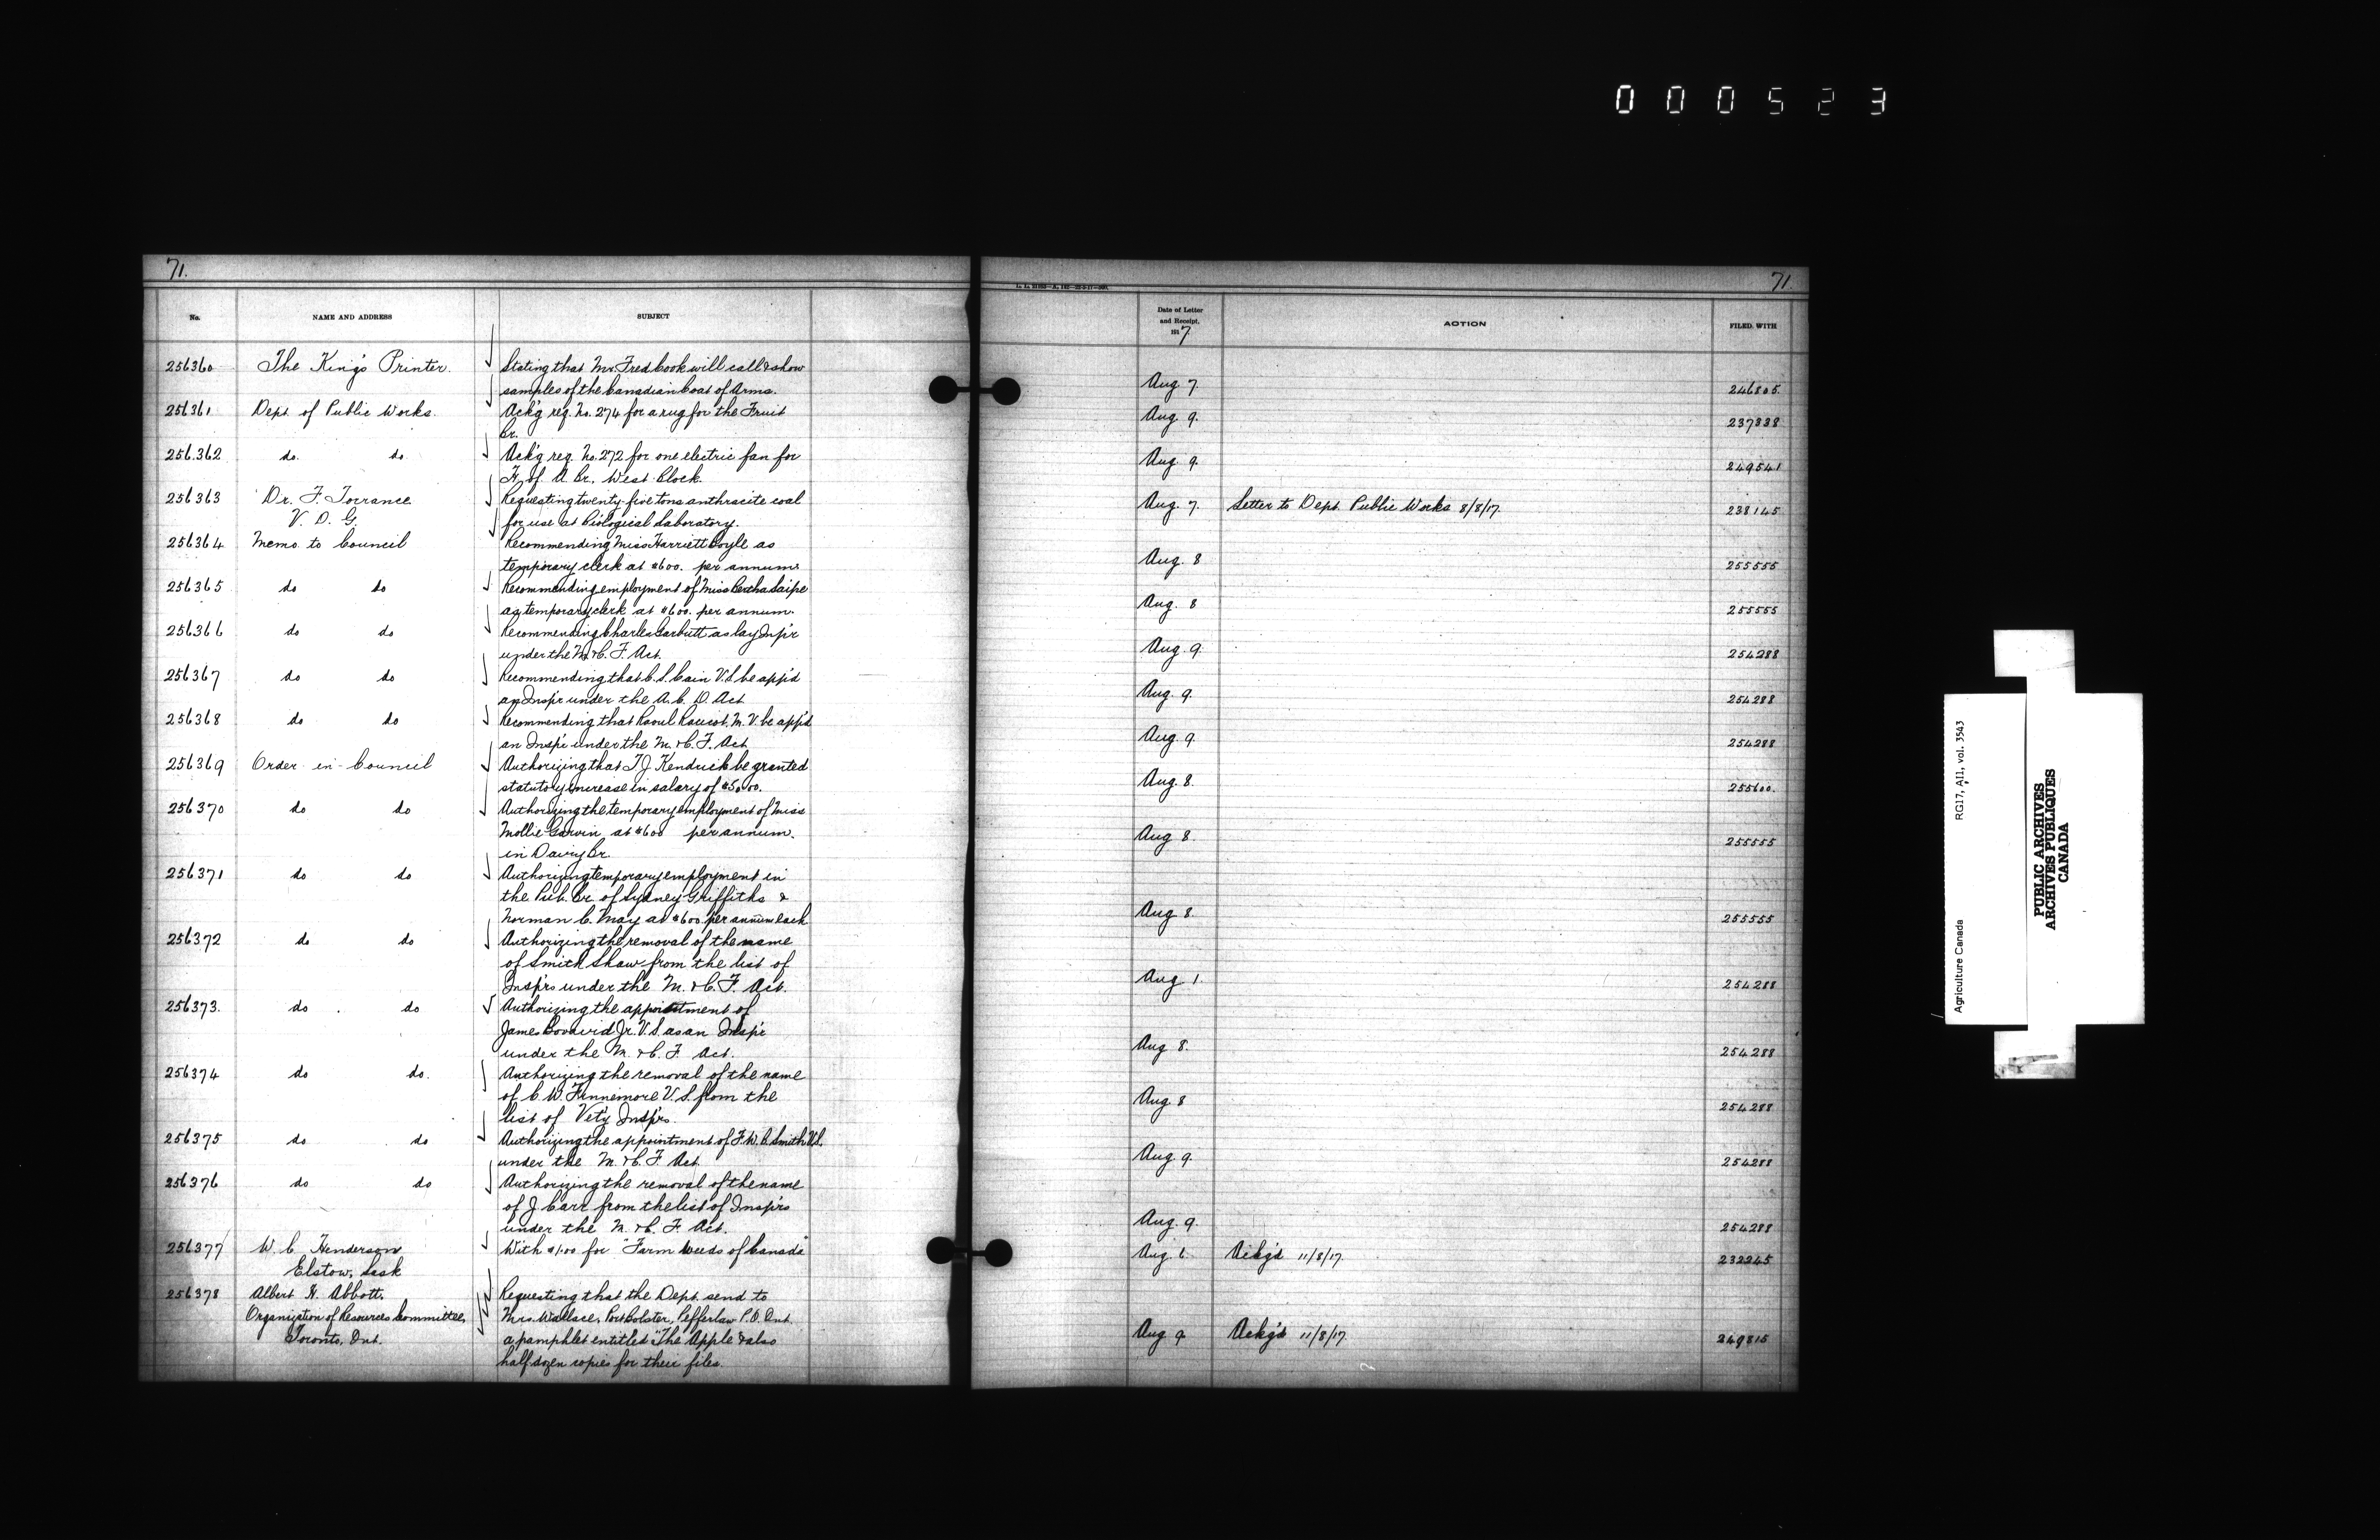 000523
71.
No.
NAME AND ADDRESS
SUBJECT
256360 The King's Printer. Stating that Mr. Fred Cook will call & show
samples of the Canadian Coat of Arms.
256361 Dept. of Public Works. Ack'g req. No. 274 for a rug for the Fruit
Br.
256362 do. do. Ack'g req. No. 272 for one electric fan for
H. of A. Br. West Block.
256363 Dr. F. Torrance Requesting twenty-five tons anthracite coal
V. D. G. for use at Biological Laboratory.
256364 Memo. to Council Recommending Miss Harriett Boyle as
temporary clerk at $600. per annum.
256365 do do Recommending employment of Miss Bertha Saipe
as temporary clerk at $600. per annum.
256366 do do Recommending Charles Garbutt as lay Insp'r
under the M. & C. F. Act.
256367 do do Recommending that C. S. Cain V.S. be app'd
an Insp'r under the A. C. D. Act
256368 do do Recommending that Raoul Racicot, M.V. be app'd
an Insp'r under the M. & C. F. Act
256369 Order-in-Council Authorizing that T. J. Kendrick be granted
statutory increase in salary of $50.00.
256370 do do Authorizing the temporary employment of Miss
Mollie Garvin at $600 per annum.
in Dairy Br.
256371 do do Authorizing temporary employment in
the Pub. Br. of Sydney Griffiths &
Norman C. May at $600 per annum each
256372 do do Authorizing the removal of the name
of Smith Shaw from the list of
Insp'rs under the M. & C. F. Act.
256373. do do Authorizing the appointment of
James Jr. V.S. as an Insp'r
under the M. & C. F. Act.
256374 do do. Authorizing the removal of the name
of C. W. Finnemore V.S. from the
list of Vet'y Insp'rs.
256375 do do Authorizing the appointment of F. W. C. Smith V.S.
under the M. & C. F. Act
256376 do do Authorizing the removal of the name
of J. Carr from the list of Insp'rs
under the M. & C. F. Act.
256377 W. C. Henderson With $1.00 for "Farm Weeds of Canada"
Elstow, Sask
256378 Albert H. Abbott, Requesting that the Dept. send to
Organization of Resources Committee, Mrs. Wallace, Port Bolster, Pefferlaw P.O. Ont.
Toronto, Ont. a pamphlet entitled "The Apple & also
half dozen copies for their files.
71.
Date of Letter
and Receipt,
1917
ACTION
FILED WITH
Aug. 7. 246805.
Aug. 9. 237838
Aug. 9. 249541
Aug. 7. Letter to Dept. Public Works 8/8/17. 238145
Aug. 8 255555
Aug. 8 255555
Aug. 9. 254288
Aug. 9. 254288
Aug. 9 254288
Aug. 8. 255600.
Aug 8. 255555
Aug 8. 255555
Aug 1. 254288
Aug 8. 254288
Aug. 8 254288
Aug. 9. 254288
Aug. 9. 254288
Aug. 6. Ackg'd 11/8/17. 232245
Aug 9. Ackg'd 11/8/17. 249815
Agriculture Canada RG17, A11, vol. 3543
PUBLIC ARCHIVES
ARCHIVES PUBLIQUES
CANADA